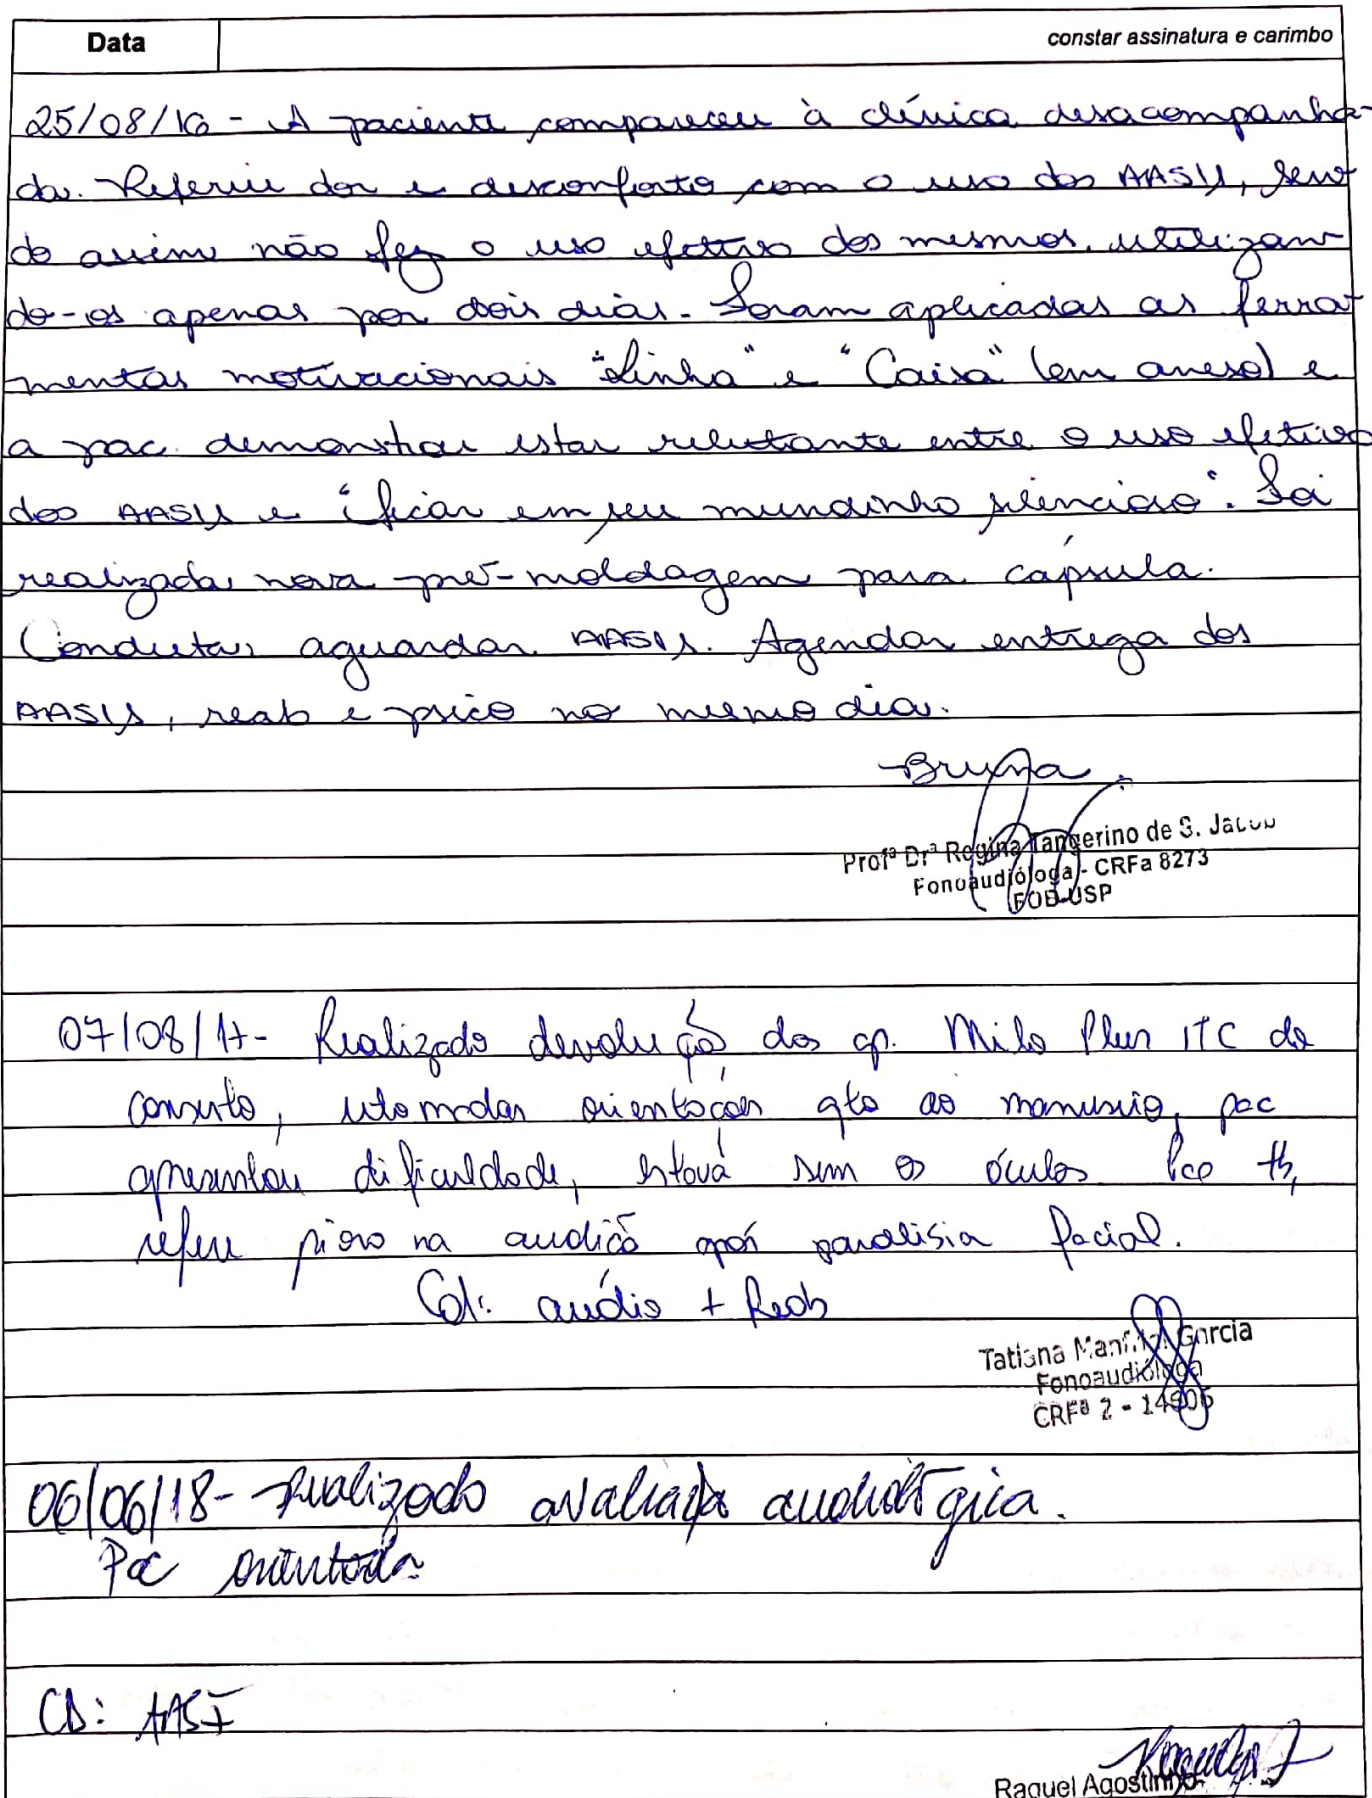 Data constar assinatura e carimbo
25/08/16 - A paciente compareceu à clínica desacompanha-
da. Referiu dor e desconforto com o uso dos AASIs, sen
do assim não fez o uso efetivo dos mesmos, utilizan
do-os apenas por dois dias. Foram aplicadas as ferra
mentas motivacionais "Linha" e "Caixa" (em anexo) e
a pac. demonstrou estar relutante entre o uso efetivo
dos AASIs e "ficar em seu mundinho silencioso". Foi
realizada nova pré-moldagem para cápsula.
Conduta: aguardar AASIs. Agendar entrega dos
AASIs, reab e psico no mesmo dia.
Bruna
Profª Drª Regina Tangerino de S. Jacob
Fonoaudióloga - CRFa 8273
FOB-USP
07/08/17- Realizado devolução dos ap. Milo Plus ITC do
conserto, retomadas orientações qto ao manuseio, pac
apresentou dificuldade, estava sem os óculos
refere piora na audição após paralisia facial.
Cd: audio + Reab
Tatiana Garcia
Fonoaudióloga
CRFª 2 - 14905
06/06/18- Realizado avaliação audiológica.
Pac orientada
CD: AASI
Raquel Agostinho